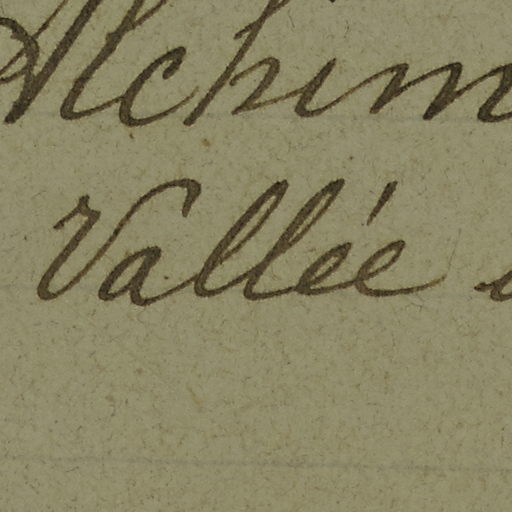 Alchim
Vallée